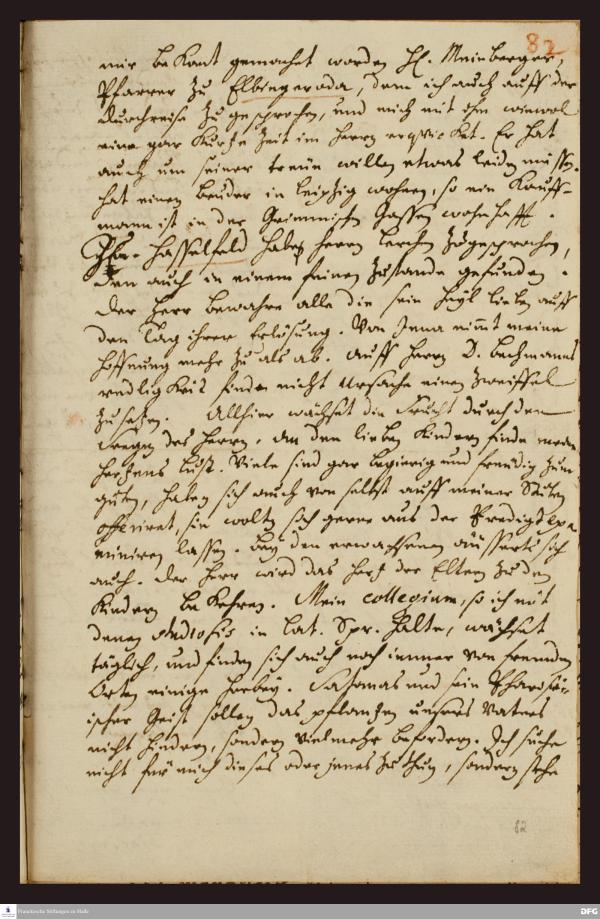 82
mir bekant gemacht worden H. Meinberger,
Pfarrer zu Elbingeroda, dem ich auch auff der
Durchreise zugesprochen, und mich mit ihm wiewol
eine gar kurtze Zeit im Herrn erqvicket. Er hat
auch um seiner treue willen etwas leiden müssen.
hat einen bruder in Leipzig wohnen, so ein Kauff-
mann ist in der Grimmischen Gassen wohnhafft.
Hasselfeld habe Herrn Lerchen zugesprochen,
den auch in einem feinen Zustande gefunden.
Der Herr bewahre alle die sein Heyl lieben auff
den Tag ihrer Erlösung. Von Jena nimt meine
hoffnung mehr zu als ab. Auff Herrn D. Bechmanns
redligkeit finde nicht Ursache einen Zweiffel
zu setzen. Allhier wächset die Frucht durch den
Seegen des Herrn. An den lieben Kindern finde meines
hertzens lust. Viele sind gar begierig und freudig zum
guten, haben sich auch von selbst auff meiner Stuben
offeriret, sie wolten sich gerne aus der Predigt exa-
miniren lassen. Bey den erwachsenen äussert sich
auch. Der Herr wird das hertz der Eltern zu den
Kindern bekehren. Mein collegium, so ich mit
denen studiosis in Lat. Spr. halte, wächset
täglich, und finden sich auch noch immer von fremden
Orten einige herbey. Satanas und sein Pharisäi-
ischer Geist sollen das pflantzen unsers Vaters
nicht hindern, sondern vielmehr befordern. Ich suche
nicht für mich dieses oder jenes zu thun, sondern sehe
82
Franckesche Stiftungen zu Halle
DFG